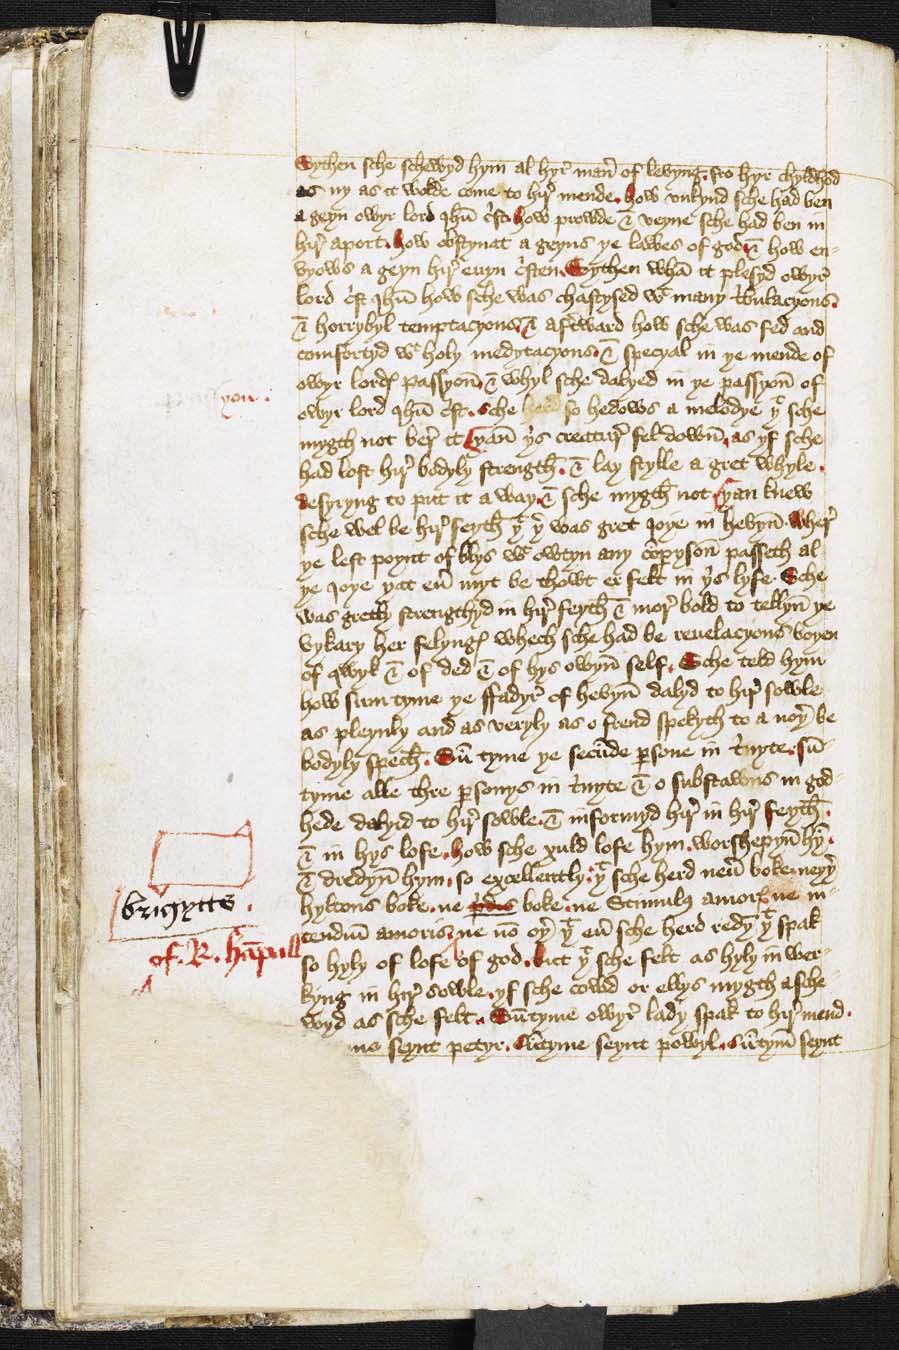 Sythen sche schewyd hym al hyr maner of levyng fro hyr chyldhod
as ny as it wolde come to hir mende. how vnkynd sche had ben
a geyn owyr lord jhū cst. how prowde & veyne sche had ben in
hir aport. how obstynat a geyns ye lawes of god. & how en-
vyows a geyn hir euyn cristen. Sythen whā it plesyd owyr
lord cst jhū how sche was chastysed wt many tribulacyons.
& horrybyl temptacyons. & aftward how sche was fed and
comfortyd wt holy medytacyons. & specyal in ye mende of
owyr lordes passyon. & whyl sche dalyed in ye passyon of
you.
owyr lord jhū cst. sche herd so hedows a melodye yt sche
mygth not ber it yan yis creatur fel down. as yf sche
had lost hir bodyly strength. & lay stylle a gret whyle.
desyryng to put it a way. & sche mygth not yan knew
sche wel be hir feyth yt yer was gret joye in hevyn. wher
ye lest poynt of blys wt owtyn any coparyson passeth al
ye joye yat eu myt be thowt er felt in yis lyfe. Sche
was gretly strengthyd in hir feyth & mor bold to tellyn ye
vykary her felynges whech sche had be reuelacyons boyen
of qwyk & of ded & of hys owyn self. Sche teld hym
how sum tyme ye ffadyr of hevyn dalyd to hir sowle
as pleynly and as veryly as o frend spekyth to a noyer be
bodyly spech. Sū tyme ye secunde persone in trinyte. sū-
tyme alle thre personys in trinyte & o substawns in god-
hede dalyid to hir sowle. & informyd hir in hir feyth.
& in hys lofe. how sche xuld lofe hym. worshepyn hȳ.
& dredyn hym. so excellently. yt sche herd neu boke. neyyer
bregytts.
hyltons boke. ne brides boke. ne Stimulus amoris. ne in-
of. R. hāpall
cendiū amoris. ne no oyer yt eu sche herd redyn yt spak
so hyly of lofe of god. but yt sche felt as hyly in wer-
kyng in hir sowle. yf sche cowd or ellys mygth a sche
wyd as sche felt. Sūtyme owyr lady spak to hir mend.
me seynt petyr. Sūtyme seynt powyl. Sūtym seynt